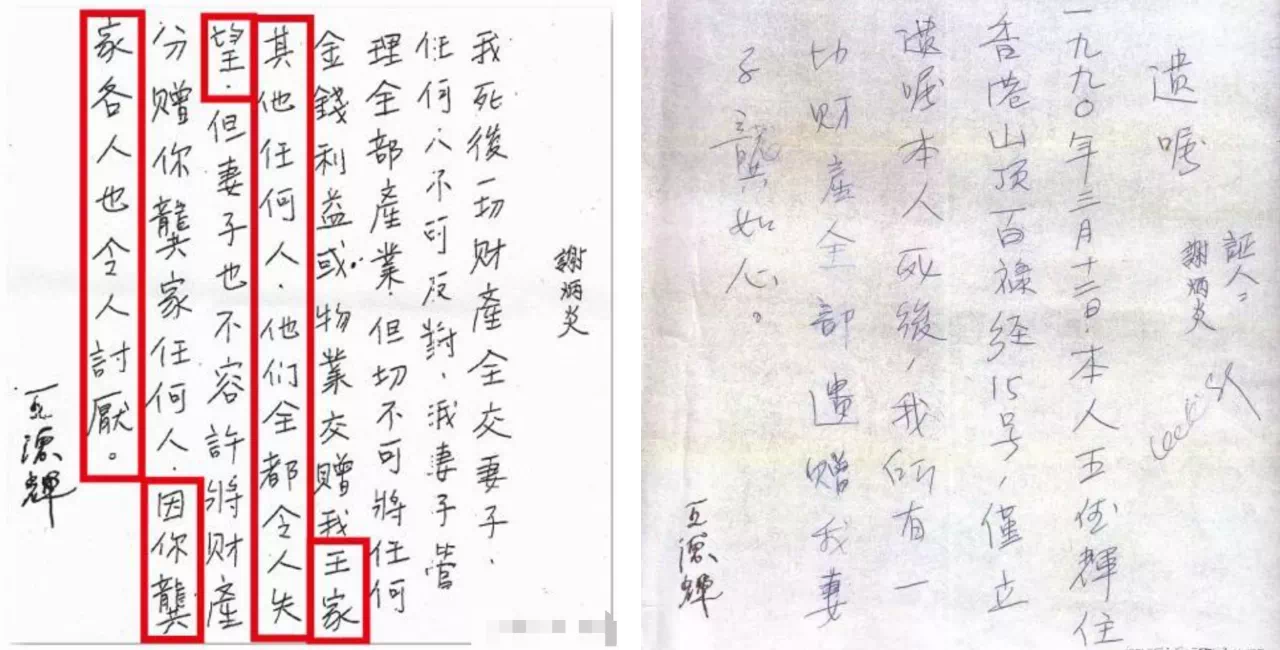 謝炳炎
我死後一切财產全交妻子.
任何人不可反對,我妻子管
理全部產業.但切不可將任何
金錢利益或.物業交赠我王家
其他任何人.他们全都令人失
望.但妻子也不容許將财產
分赠你龔家任何人.因你龔
家各人也令人討厭。
王德輝
遺嘱
証人:
謝炳炎
一九九〇年三月十二日.本人王德輝住
香港山顶百禄径15号,僅立
遗嘱本人死後,我所有一
切财產全部遺赠我妻
子龔如心。
王德輝